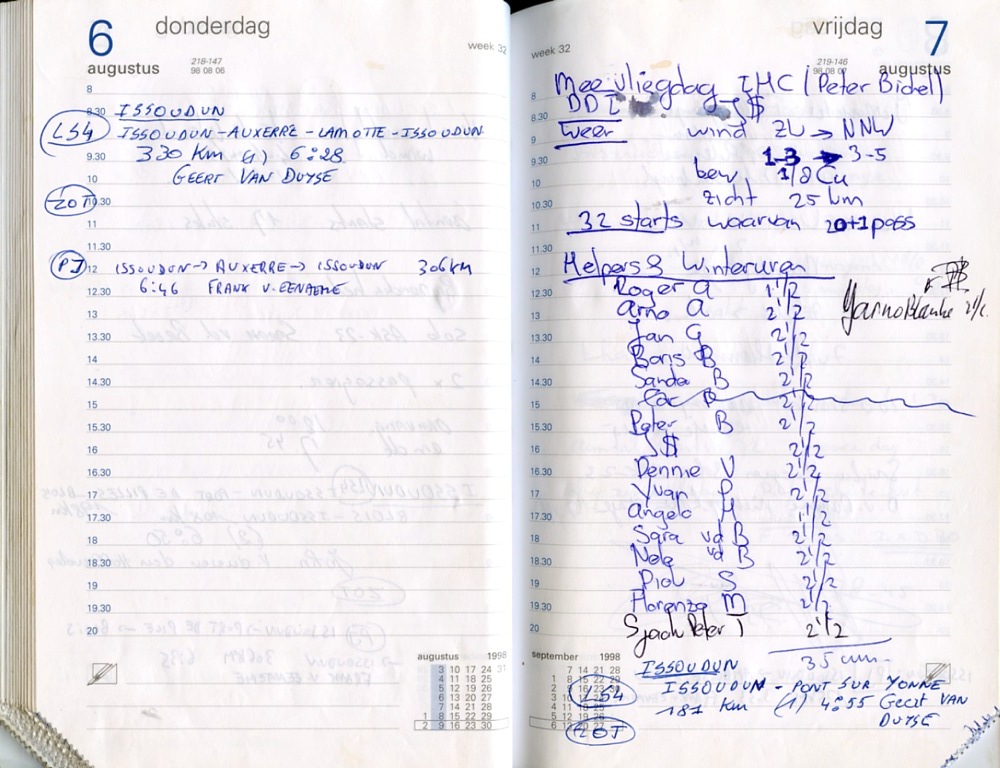 6 donderdag
week 32
augustus
218-147
98 08 06
8
8.30 ISSOUDUN
LS4 ISSOUDUN-AUXERRE-LAMOTTE-ISSOUDUN
9.30 330 Km (1) 6:28
10 GEERT VAN DUYSE
10.30
11
11.30
PJ 12 ISSOUDUN → AUXERRE → ISSOUDUN 306KM
12.30 6:46 FRANK V. EENAEME
13
13.30
14
14.30
15
15.30
16
16.30
17
17.30
18
18.30
19
19.30
20
augustus 1998
3 10 17 24 31
4 11 18 25
5 12 19 26
6 13 20 27
7 14 21 28
1 8 15 22 29
2 9 16 23 30
vrijdag 7
week 32
219-146
98 08 07
augustus
8 Meevliegdag IHC (Peter Bidel)
8.30 DDI → $
9 Weer wind ZW → NNW
9.30 1-3 → 3-5
10 bew 1/8 Cu
10.30 zicht 25 km
11 32 starts waarvan 20+1 pass
11.30
12 Helpers & Winteruren
12.30 Roger A 1 1/2
13 Arno A 2 1/2
Jan G 2 1/2
13.30
14 Boris B 2 1/2
14.30 Sanda B 2 1/2
15 2 1/2
15.30 Peter B 2 1/2
16 J$ 2 1/2
16.30 Dennie V 2 1/2
17 Yvan 2 1/2
17.30 Angelo H 1 1/2
18 Sara vd B 2 1/2
18.30 Nele vd B 2 1/2
19 Piol S 2 1/2
19.30 Florenza M 2 1/2
20 Sjach Peter T 2 1/2
35 uur
Yarno Blanke 2 1/2
september 1998
7 14 21 28
1 8 15 22 29
2 9 16 23 30
3 10
4 11
5 12 19
6
ISSOUDUN
LS4 ISSOUDUN - PONT SUR YONNE
187 Km (1) 4:55 Geert VAN
DUYSE
20T